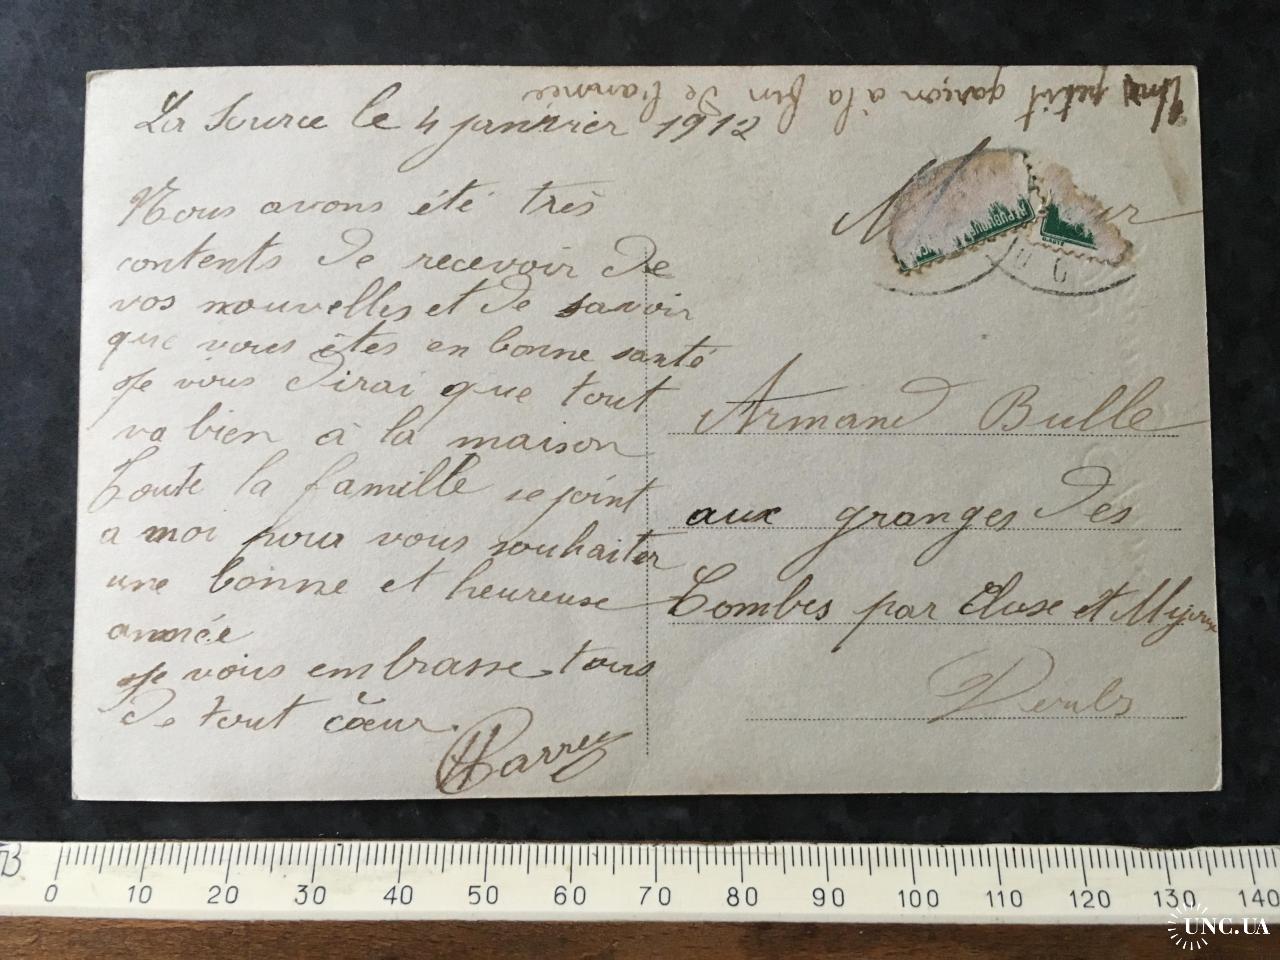 La Source le 4 janvier 1912
Nous avons été très
contents de recevoir de
vos nouvelles et de savoir
que vous êtes en bonne santé
Je vous dirai que tout
va bien à la maison
Toute la famille se joint
a moi pour vous souhaiter
une bonne et heureuse
année
Je vous embrasse tous
de tout cœur.
petit garçon à la fin de l'année
Armand Bulle
aux granges des
Combes par et
Doubs
0 10 20 30 40 50 60 70 80 90 100 110 120 130 140
UNC.UA